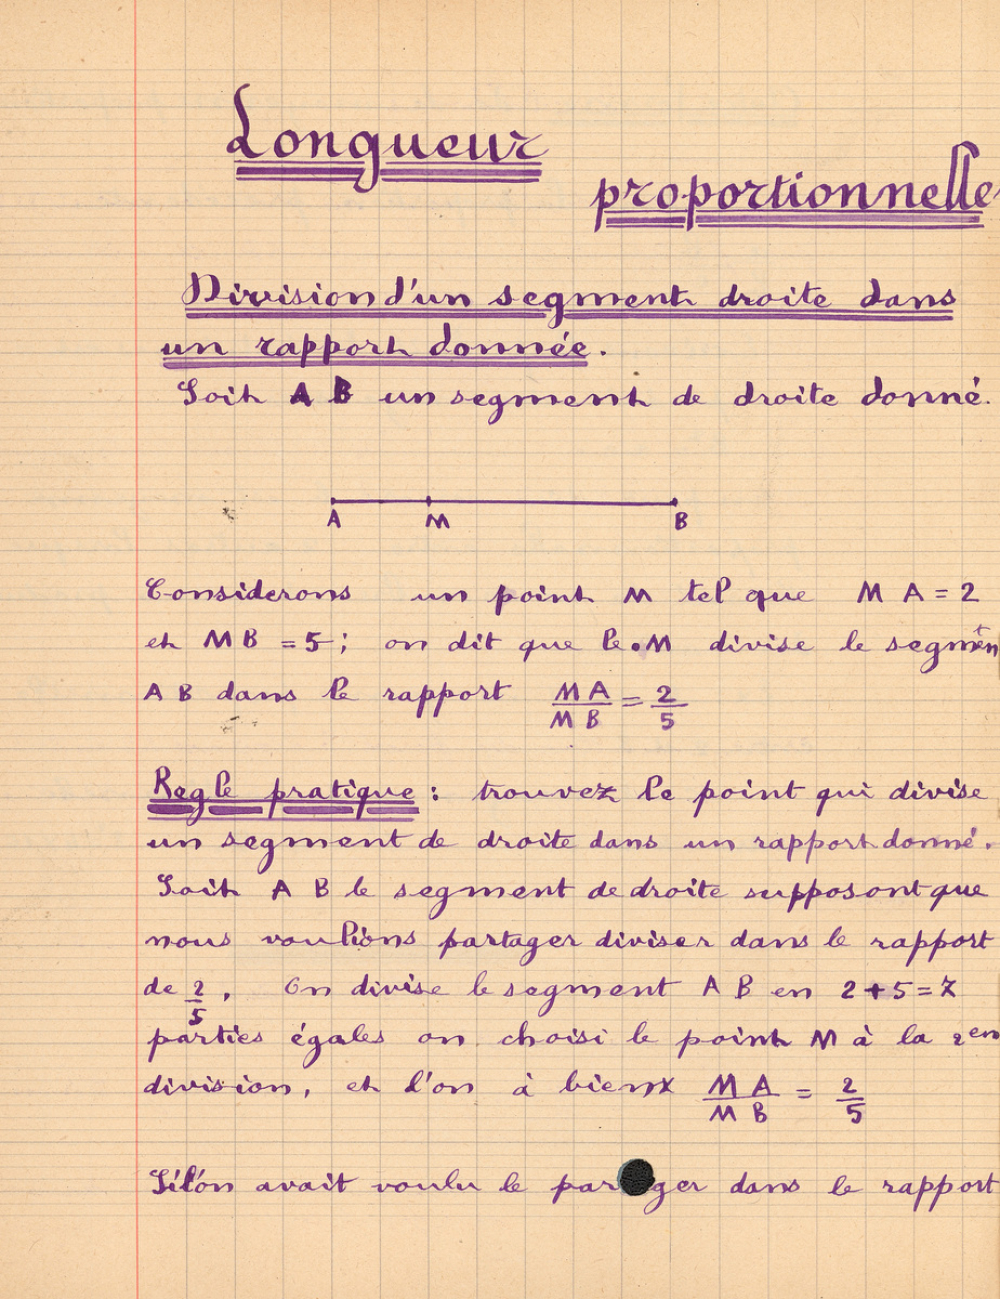 Longueur
proportionnelle
Division d'un segment droite dans
un rapport donnée.
Soit A B un segment de droite donné.
A M B
Considerons un point M tel que M A = 2
et M B = 5; on dit que le . M divise le segment
A B dans le rapport M A / M B = 2 / 5
Regle pratique : trouvez le point qui divise
un segment de droite dans un rapport donné.
Soit A B le segment de droite supposont que
nous voulions partager diviser dans le rapport
de 2 / 5, On divise le segment A B en 2 + 5 = 7
parties égales on choisi le point M à la 2en
division, et l'on à bien M A / M B = 2 / 5
Si l'on avait voulu le partager dans le rapport